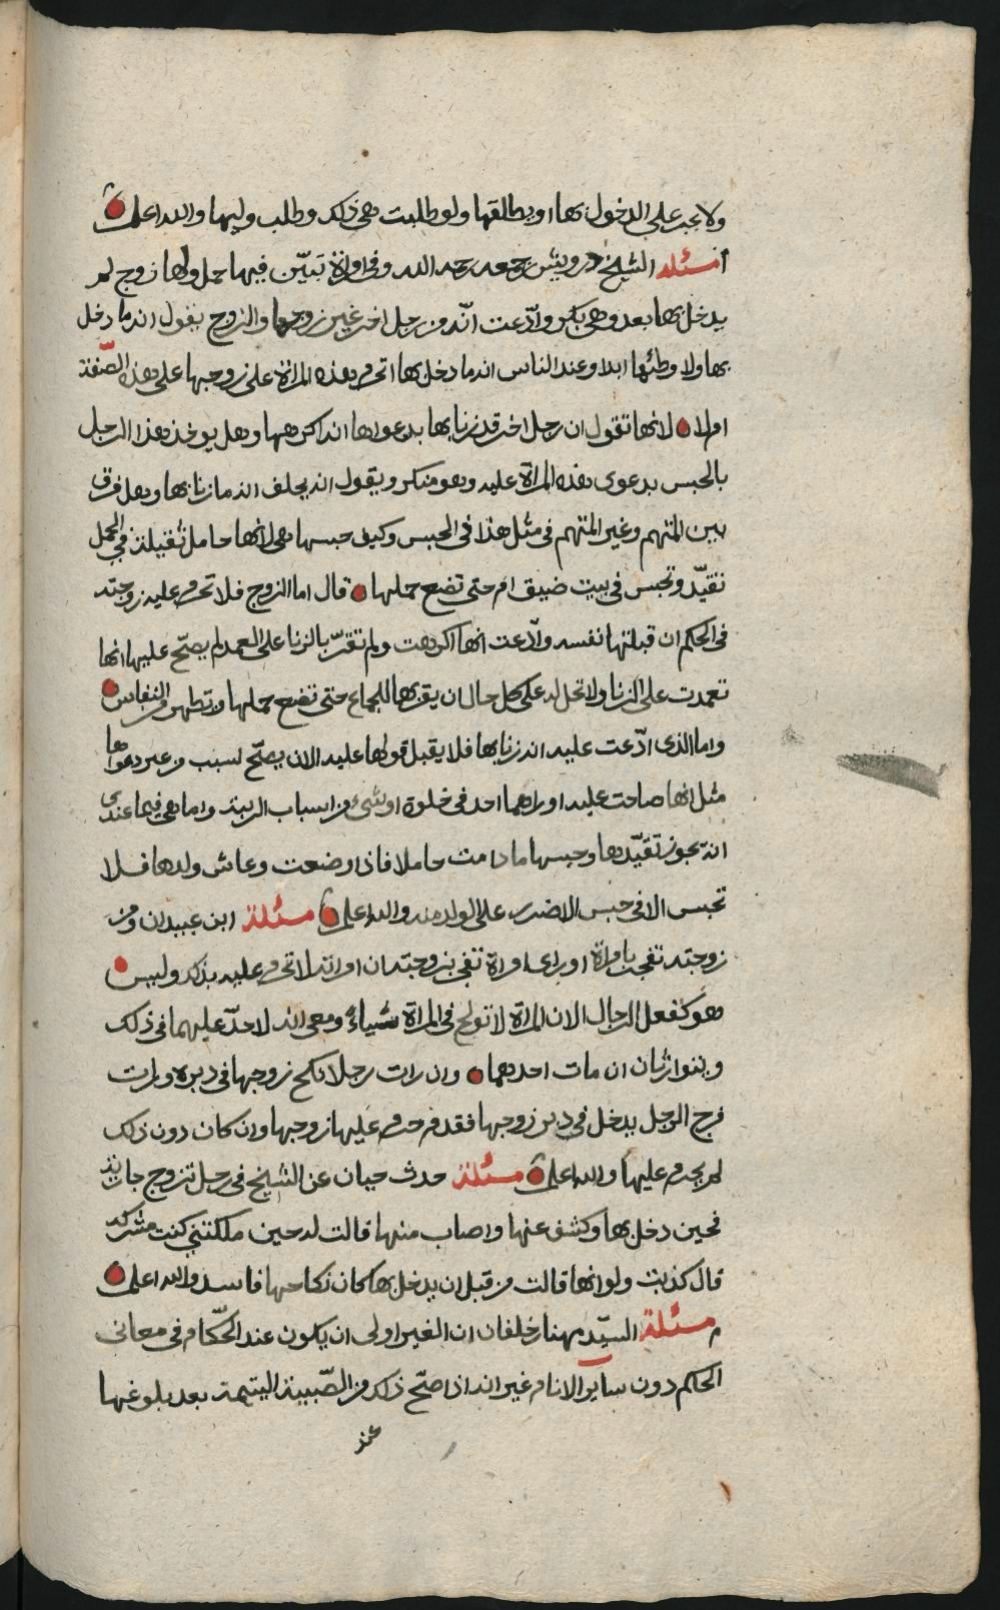 ولا يجبر على الدخول بها او يطلقها ولو طلبت هي ذلك وطلب وليها والله اعلم
مسئلة الشيخ درويش بن جمعه رحمه الله وفي امراة تبيّن فيها حمل ولها زوج لم
يدخل بها بعد وهي بكر وادّعت انّه من رجل اخر غير زوجها والزوج يقول انه ما دخل
بها ولا وطئها ابدا وعند الناس انه ما دخل بها اتحرم هذه المراة على زوجها على هذه الصّفة
ام لا لانها تقول ان رجل اخر قد زنا بها بدعواها انه اكرهها وهل يوخذ هذا الرجل
بالحبس بدعوى هذه المراة عليه وهو منكر ويقول انه يحلف انه ما زنا بها وهل فرق
بين المتهم وغير المتهم في مثل هذا في الحبس وكيف حبسها هي لانها حامل ثقيلة في الحمل
تقيّد وتحبس في بيت ضيق ام حتى تضع حملها قال اما الزوج فلا تحرم عليه زوجته
في الحكم ان قبلتها نفسه وادّعت انها اكرهت ولم تقرّ بالزنا على العمد لم يصحّ عليها انها
تعمدت على الزنا ولا تحل له على كل حال ان يقربها للجماع حتى تضع حملها وتطهر من النفاس
واما الذي ادّعت عليه انه زنا بها فلا يقبل قولها عليه الا ان يصحّ لسبب من غير دعواها
مثل انها صاحت عليه او راهما احد في خلوة او شيء من اسباب الريبة واما هي فيما عندي
انه يجوز تقيّدها وحبسها ما دامت حاملا فاذا وضعت وعاش ولدها فلا
تحبس الا في حبس لا ضرر على الولد منه والله اعلم مسئلة ابن عبيدان ومن
زوجته تفجر بامراة او راى امراة تفجر بزوجته ان امراته لا تحرم عليه بذلك وليس
هو كفعل الرجال لان المراة لا تولج في المراة شياء ومعي انه لا حدّ عليهما في ذلك
ويتوارثان ان مات احدهما وان رات رجلا نكح زوجها في دبره ورات
فرج الرجل يدخل في دبر زوجها فقد حرم عليها زوجها وان كان دون ذلك
لم يحرم عليها والله اعلم مسئلة حدث حيان عن الشيخ في رجل تزوج جارية
فحين دخل بها وكشف عنها واصاب منها قالت له حين ملكتني كنت مشركة
قال كذبت ولو انها قالت من قبل ان يدخل بها كان نكاحها فاسد والله اعلم
مسئلة السيّد مهنا بن خلفان ان الغير اولى ان يكون عند الحكّام في معانى
الحكم دون ساير الانام غير انه اذا صحّ ذلك من الصّبية اليتيمة بعد بلوغها